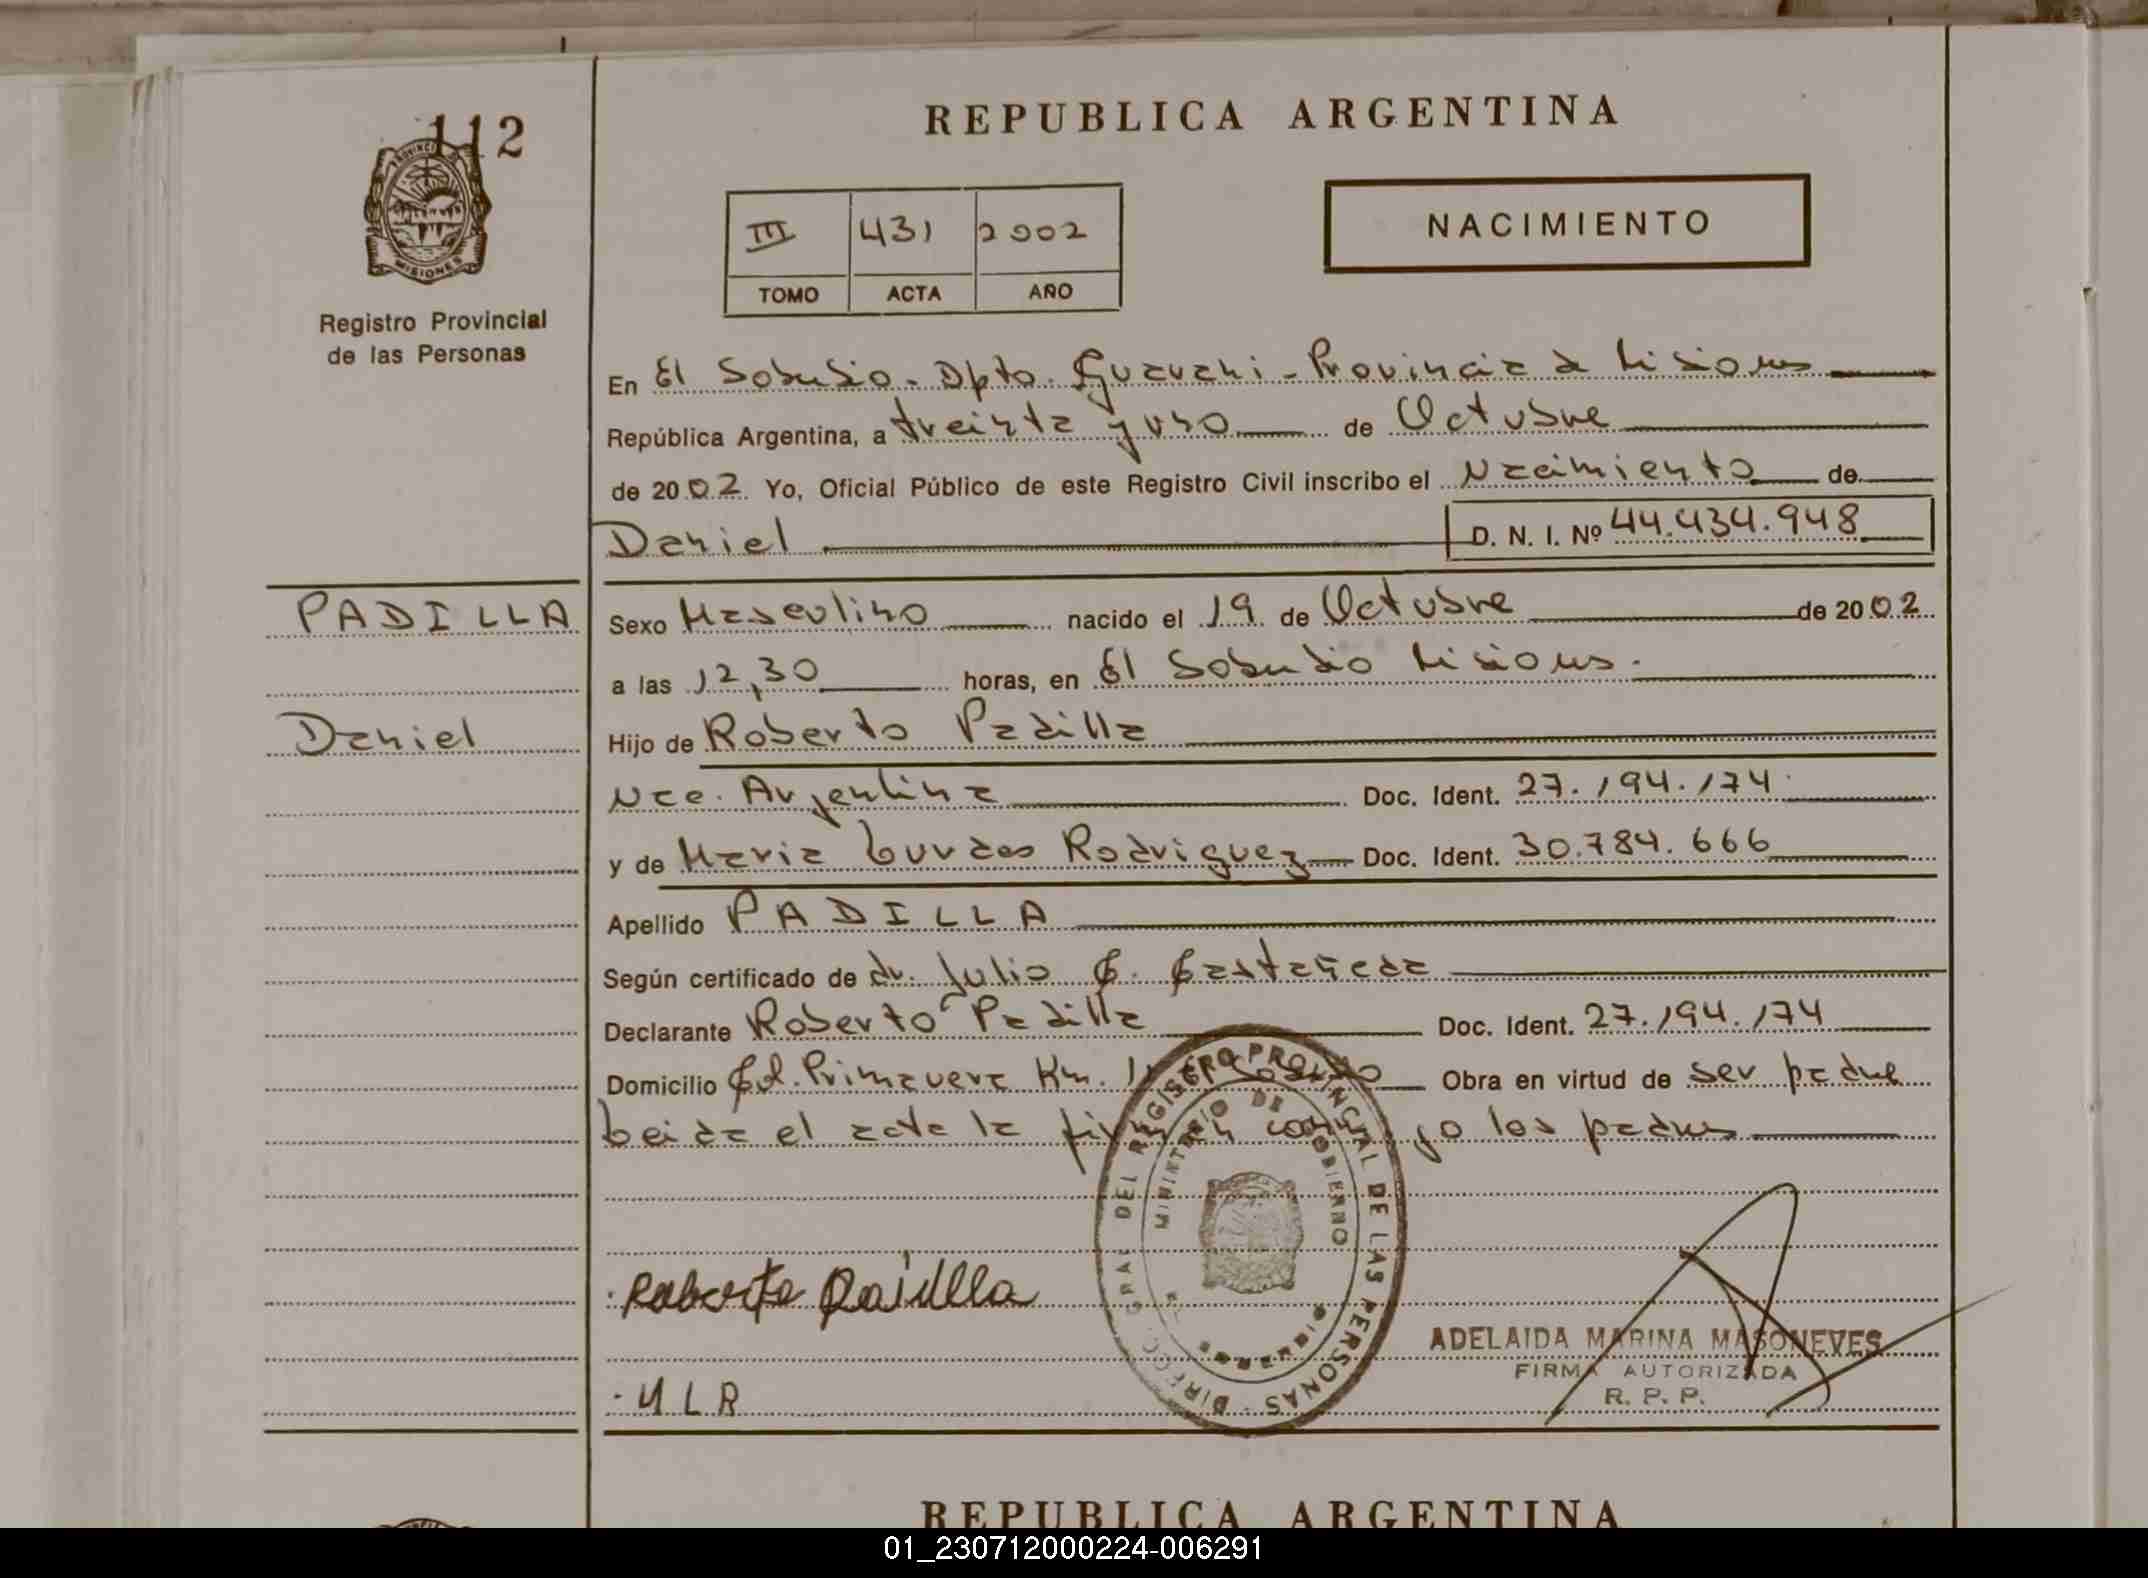 112
PROVINCIA DE
MISIONES
Registro Provincial
de las Personas
REPUBLICA ARGENTINA
III 431 2002
TOMO ACTA AÑO
NACIMIENTO
En El Soberbio - Dpto. Guarani - Provincia de Misiones
República Argentina, a treinta y uno de Octubre
de 2002. Yo, Oficial Público de este Registro Civil inscribo el Nacimiento de
Daniel D. N. I. Nº 44.434.948
PADILLA
Daniel
Sexo Masculino nacido el 19 de Octubre de 2002
a las 12,30 horas, en El Soberbio Misiones.
Hijo de Roberto Padilla
Nac. Argentina Doc. Ident. 27.194.174
y de Maria Lurdes Rodriguez Doc. Ident. 30.784.666
Apellido PADILLA
Según certificado de dr. Julio C. Castañeda
Declarante Roberto Padilla Doc. Ident. 27.194.174
Domicilio Col. Primavera Km. Obra en virtud de ser padre
Leida el acta la firman conmigo los padres
DIRECC. GRAL. DEL REGISTRO PROVINCIAL DE LAS PERSONAS
MINISTERIO DE GOBIERNO
MISIONES
Roberto Padilla
ADELAIDA MARINA MASONEVES
FIRMA AUTORIZADA
R. P. P.
M L R
REPUBLICA ARGENTINA
01_230712000224-006291